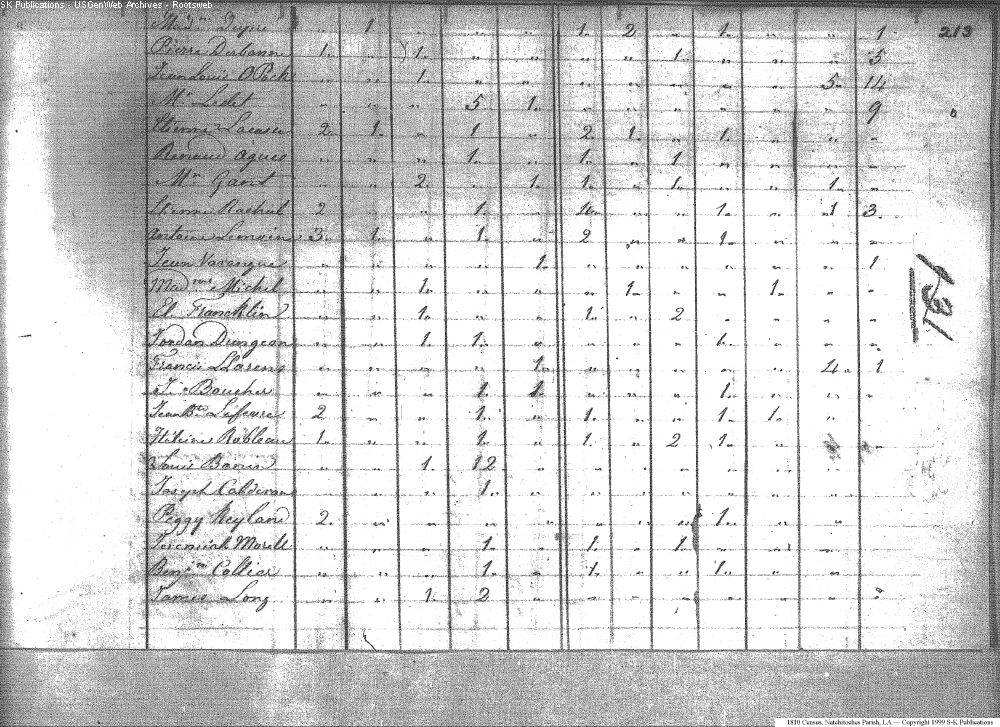 SK Publications - USGenWeb Archives - Rootsweb
213
1. 1. 2 1. 1
Pierre Derbanne 1. 1. 1. 5
Jean Louis 1. 5 14
Mr. Ledet 5 1. 9
Etienne Lacase 2. 1. 1 2. 1. 1.
Renaud 1. 1. 1
Mr. Gant 2. 1. 1. 1. 1.
Etienne Rachal 2 1. 4. 1. 1 3.
Antoine 3. 1. 1. 2 1.
Jean Varangue 1. 1
Madme Michel 1. 1. 1.
El. Francklin 1. 1. 2
Jordan Dungean 1 1. 1.
Francis Llorens 1. 4. 1
J. Boucher 1. 1. 1.
Jean Bte Lefevre 2 1. 1. 1. 1.
Robleau 1. 1. 1. 2 1.
Louis 1. 12
Joseph Calderon 1.
Peggy Neyland 2. 1.
Jeremiah Morell 1. 1. 1
Benjmn Collier 1. 1. 1.
James Long 1. 2
131
1810 Census, Natchitoches Parish, LA — Copyright 1999 S-K Publications